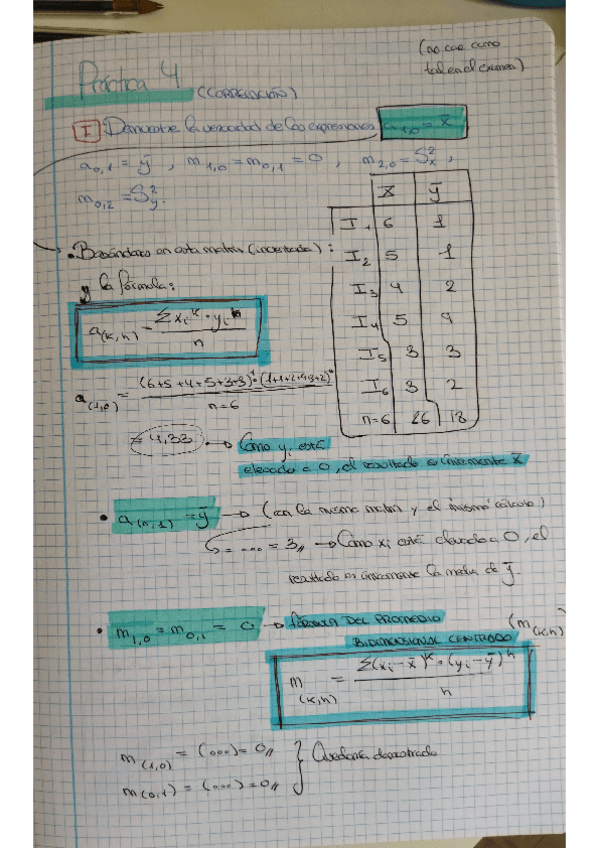 (no cae como
tal en el examen)
Práctica 4
(CORRELACIÓN)
I Demuestre la veracidad de las expresiones a₁,₀ = x̄
a₀,₁ = ȳ , m₁,₀ = m₀,₁ = 0 , m₂,₀ = S²ₓ ,
m₀,₂ = S²ᵧ.
x̄ ȳ
I₁ 6 1
I₂ 5 1
I₃ 4 2
I₄ 5 9
I₅ 3 3
I₆ 3 2
n=6 26 18
• Basándonos en esta matriz (inventada) :
y la fórmula:
a(k,h) = Σxᵢᵏ · yᵢʰ
n
a(1,0) =
n=6
= 4,33 → Como yᵢ está
elevado a 0, el resultado es únicamente x̄
• a(0,1) = ȳ → (con la misma matriz y el mismo cálculo)
= .... = 3 → Como xᵢ está elevado a 0, el
resultado es únicamente la media de ȳ.
• m₁,₀ = m₀,₁ = 0 → FÓRMULA DEL PROMEDIO (m(k,h)
BIDIMENSIONAL CENTRADO
m(k,h) = Σ(xᵢ-x̄)ᵏ · (yᵢ-ȳ)ʰ
n
m(1,0) = (...) = 0
m(0,1) = (...) = 0
} Quedaría demostrado